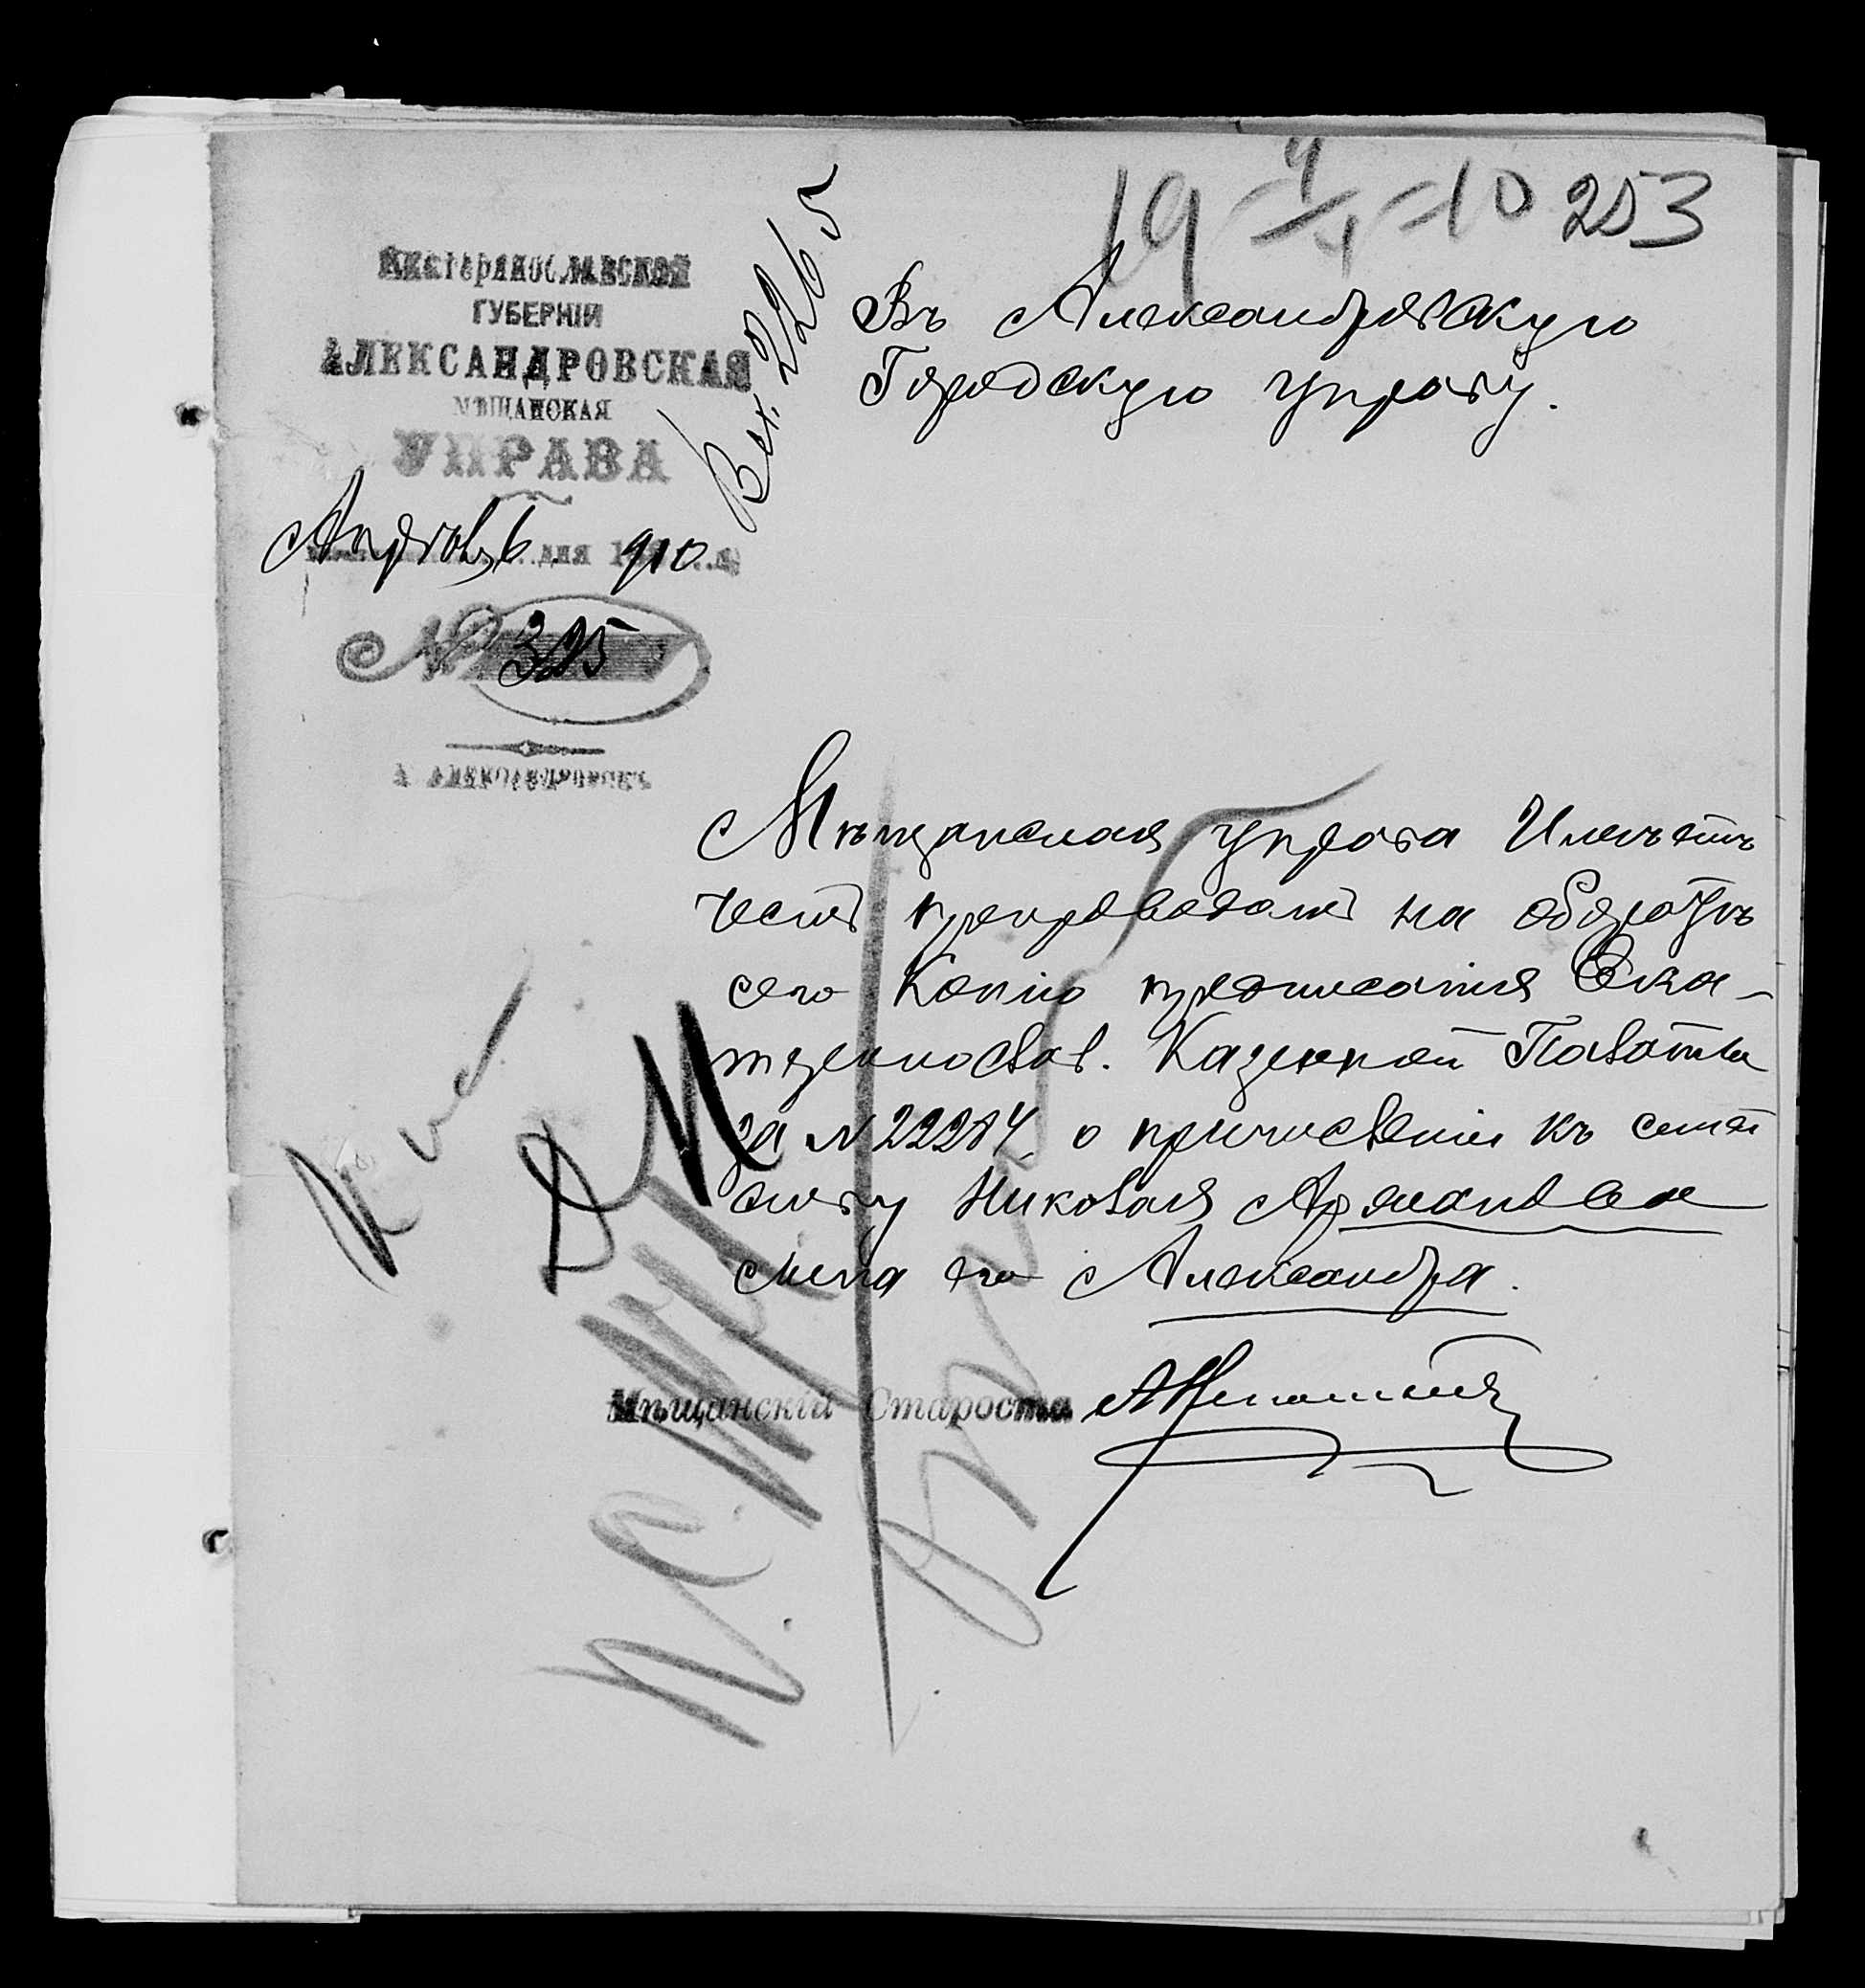 19 4/4 10 253
Екатеринославской
ГУБЕРНІИ
АЛЕКСАНДРОВСКАЯ
МѢЩАНСКАЯ
УПРАВА
Апрѣля 6 дня 1910 г.
№ 325
Г. АЛЕКСАНДРОВСКЪ
Вх. 2265
Въ Александровскую
Городскую управу.
Мѣщанская управа Имѣетъ
честь препроводить на оборотѣ
сего Копію предписанія Ека-
теринослав. Казенной Палаты
за № 22284 о причисленіи къ семей
ству Николая
сына его Александра.
Мѣщанскій Староста